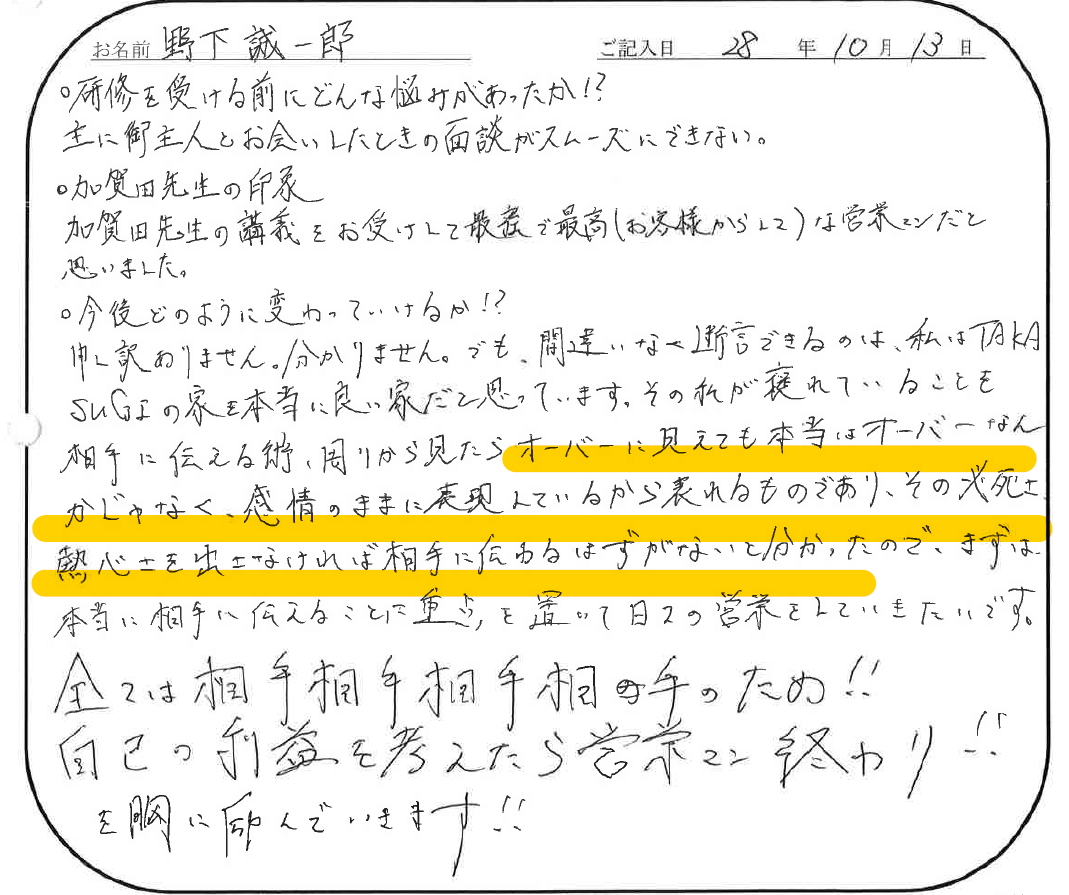 お名前 野下 誠一郎 ご記入日 28 年 10 月 13 日
○研修を受ける前にどんな悩みがあったか!?
主に御主人とお会いしたときの面談がスムーズにできない。
○加賀田先生の印象
加賀田先生の講義をお受けして最高(お客様からして)な営業マンだと
思いました。
○今後どのように変わっていけるか!?
申し訳ありません。分かりません。でも、間違いなく断言できるのは、私はTAKA
SUGIの家を本当に良い家だと思っています。その私が惚れていることを
相手に伝える術、周りから見たらオーバーに見えても本当はオーバーなん
かじゃなく、感情のままに表現しているから表れるものであり、その必死さ
熱心さを出さなければ相手に伝わるはずがないと分かったので、まずは、
本当に相手に伝えることに重点を置いて日々の営業をしていきたいです。
全ては相手相手相手相手のため!!
自己の利益を考えたら営業マン終わり!!
を胸に刻んでいきます!!